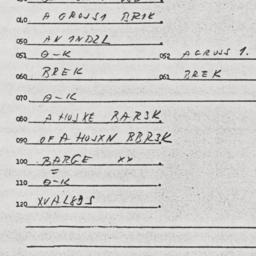 040 A GROSS1 BRIK
050 AN INDZL
051 O-K 052 ACRUSS 1.
060 BREK 061 BREK
070 O-K
080 A HOSXE BARSK
090 OF A HOSXN BBRSK
100 BARGE XX
110 O-K
120 XVAL89S